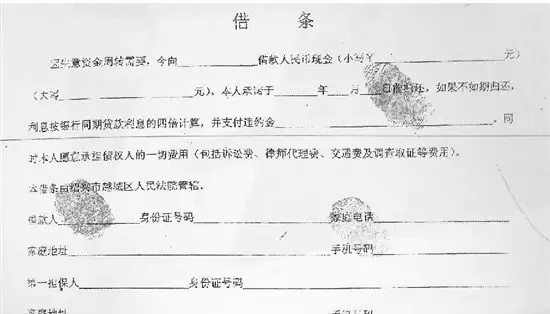 借 条
因生意资金周转需要，今向____________借款人民币现金（小写￥____________元）
（大写____________元），本人承诺于______年___月___日前归还，如果不如期归还，
利息按银行同期贷款利息的四倍计算，并支付违约金____________，同
时本人愿意承担债权人的一切费用（包括诉讼费、律师代理费、交通费及调查取证等费用）。
本借条由绍兴市越城区人民法院管辖。
借款人____________身份证号码____________家庭电话____________
家庭地址____________手机号码____________
第一担保人____________身份证号码____________
家庭地址____________手机号码____________